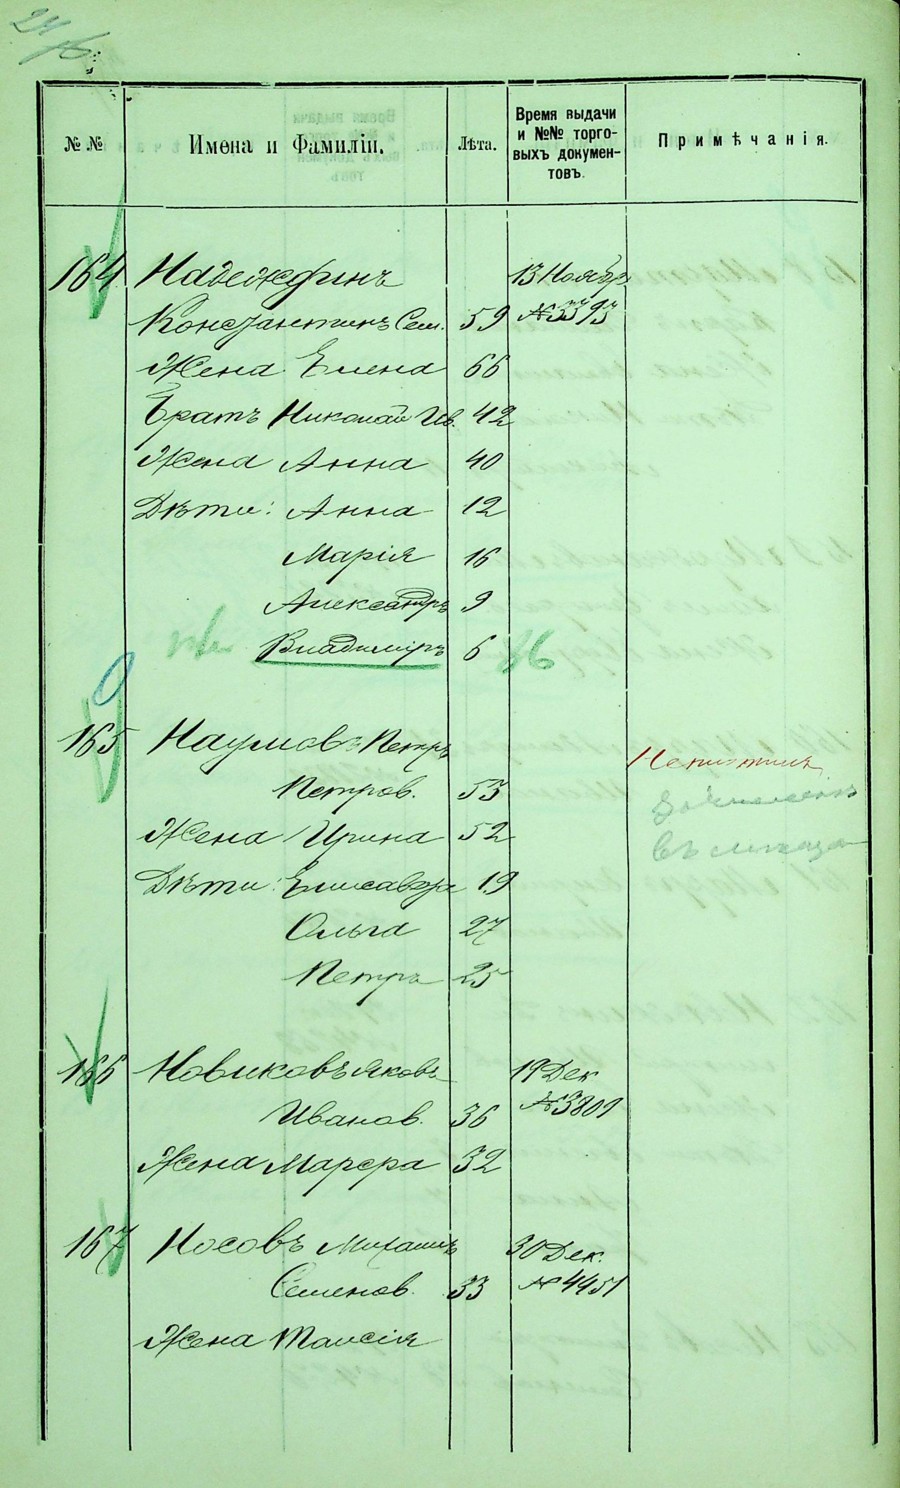 № №
Имена и Фамиліи.
Лѣта.
Время выдачи
и №№ торго-
выхъ докумен-
товъ.
Примѣчанія.
164 Надежфинъ 13 Ноябр
Константинъ Сем. 59 №3393
Жена Елена 66
Братъ Николай Ив. 42
Жена Анна 40
Дѣти: Анна 12
Марія 16
Александръ 9
Владиміръ 6
165 Наумовъ Петръ
Петров. 53
Жена Ирина 52
Дѣти: Елисавета 19
Ольга 27
Петръ 25
166 Новиковъ Яковъ 19 Дек
Иванов. 36 №3809
Жена Марфа 32
167 Носовъ Михаилъ 30 Дек.
Семенов. 33 №4451
Жена Таисія